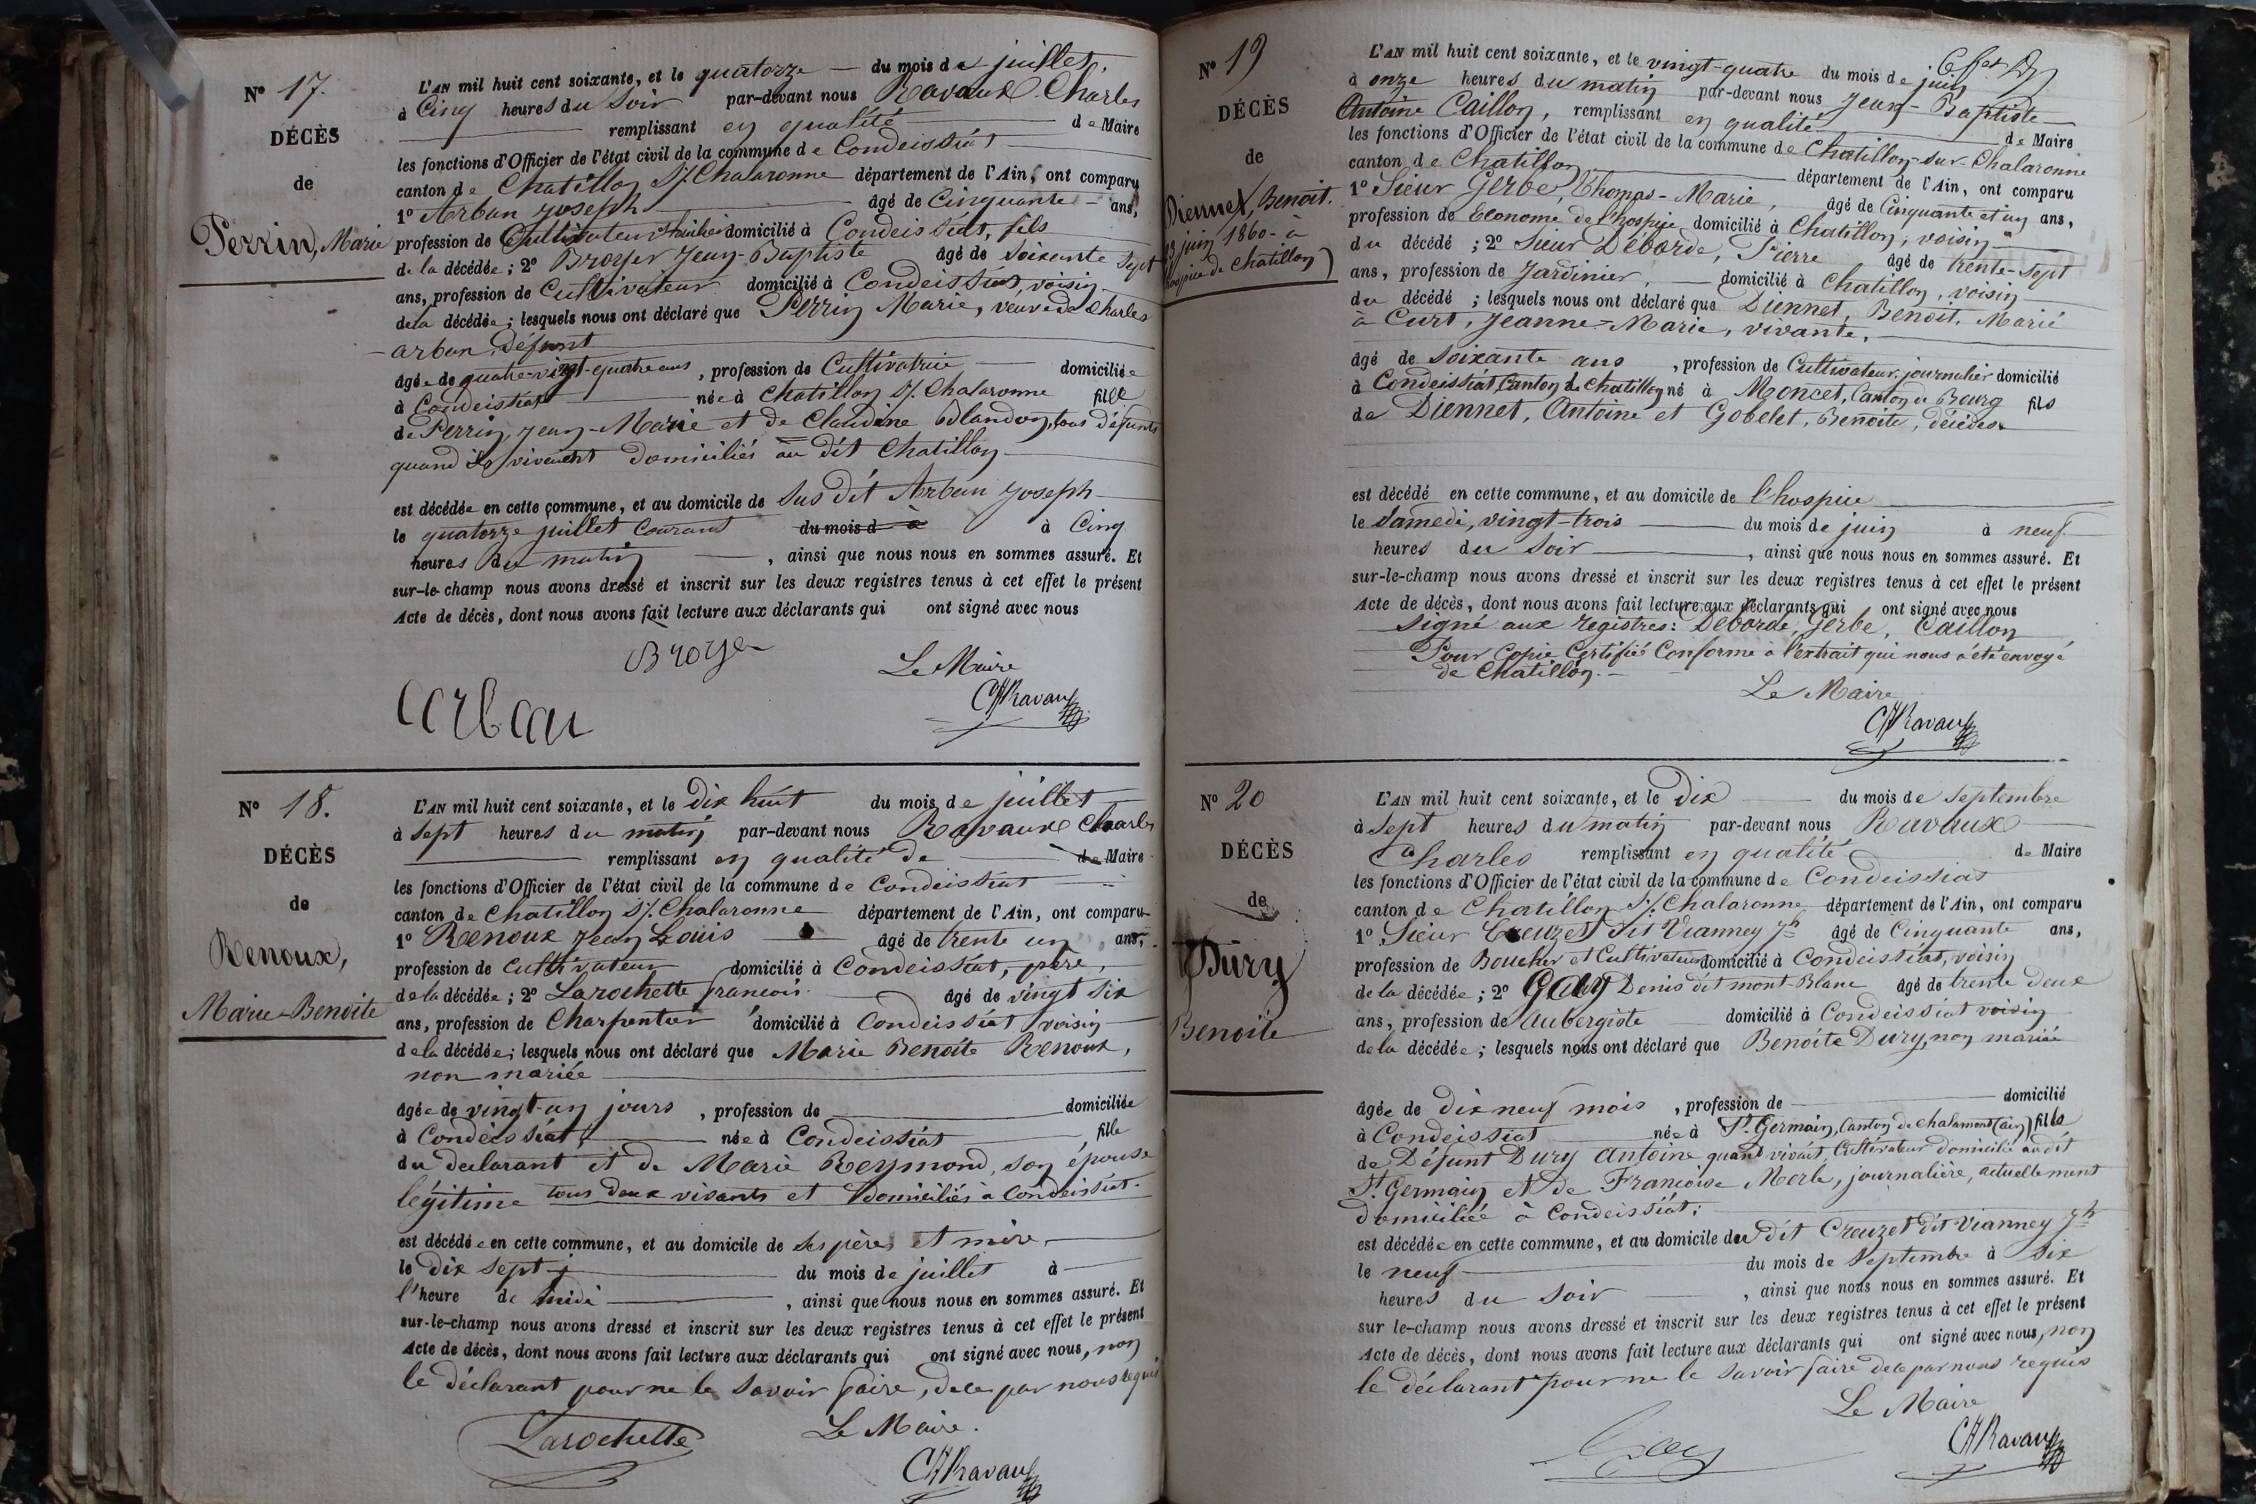 N° 17.
DÉCÈS
de
Perrin, Marie
L'AN mil huit cent soixante, et le quatorze du mois de juillet,
à Cinq heures du soir par-devant nous Ravaux Charles
remplissant en qualité de Maire
les fonctions d'Officier de l'état civil de la commune de Condeissiat
canton de Chatillon s/. Chalaronne département de l'Ain, ont comparu
1° Arban Joseph âgé de Cinquante ans,
profession de Cultivateur domicilié à Condeissiat, fils
de la décédée ; 2° Broyer Jean-Baptiste âgé de soixante sept
ans, profession de Cultivateur domicilié à Condeissiat, voisin
de la décédée ; lesquels nous ont déclaré que Perrin Marie, veuve de Charles
arban, défunt
âgée de quatre-vingt-quatre ans, profession de Cultivatrice domiciliée
à Condeissiat née à Chatillon s/. Chalaronne fille
de Perrin, Jean-Marie et de Claudine Blandon, tous défunts
quand ils vivaient domiciliés au dit Chatillon
est décédée en cette commune, et au domicile de sus dit Arban Joseph
le quatorze juillet courant du mois d à à Cinq
heures du matin, ainsi que nous nous en sommes assuré. Et
sur-le-champ nous avons dressé et inscrit sur les deux registres tenus à cet effet le présent
Acte de décès, dont nous avons fait lecture aux déclarants qui ont signé avec nous
Broyer Le Maire
arban Ch Ravaux
N° 18.
DÉCÈS
de
Renoux,
Marie-Benoite
L'AN mil huit cent soixante, et le Dix huit du mois de juillet
à sept heures du matin par-devant nous Ravaux Charles
remplissant en qualité de de Maire
les fonctions d'Officier de l'état civil de la commune de Condeissiat
canton de Chatillon s/. Chalaronne département de l'Ain, ont comparu
1° Renoux Jean Louis âgé de trente un ans,
profession de Cultivateur domicilié à Condeissiat, père,
de la décédée ; 2° Larochette françois âgé de vingt six
ans, profession de Charpentier domicilié à Condeissiat voisin
de la décédée ; lesquels nous ont déclaré que Marie Benoite Renoux,
non mariée
âgée de vingt-un jours, profession de domiciliée
à Condeissiat née à Condeissiat fille
du declarant et de Marie Reymond, son épouse
légitime tous deux vivants et domiciliés à Condeissiat.
est décédée en cette commune, et au domicile de ses pères et mère
le dix sept du mois de juillet à
l'heure de midi, ainsi que nous nous en sommes assuré. Et
sur-le-champ nous avons dressé et inscrit sur les deux registres tenus à cet effet le présent
Acte de décès, dont nous avons fait lecture aux déclarants qui ont signé avec nous, non
le déclarant pour ne le savoir faire, de ce par nous requis
Larochette Le Maire.
Ch Ravaux
N° 19
DÉCÈS
de
Diennet, Benoit.
juin 1860 à
hospice de Chatillon)
L'AN mil huit cent soixante, et le vingt-quatre du mois de juin
à onze heures du matin par-devant nous Jean-Baptiste
Antoine Caillon, remplissant en qualité de Maire
les fonctions d'Officier de l'état civil de la commune de Chatillon-sur-Chalaronne
canton de Chatillon département de l'Ain, ont comparu
1° Sieur Gerbe, Thomas-Marie, âgé de Cinquante et un ans,
profession de Econome de l'hospice domicilié à Chatillon, voisin
du décédé ; 2° Sieur Deborde, Pierre âgé de trente-sept
ans, profession de Jardinier, domicilié à Chatillon, voisin
du décédé ; lesquels nous ont déclaré que Diennet, Benoit, Marié
à Curt, Jeanne-Marie, vivante,
âgé de soixante ans, profession de Cultivateur journalier domicilié
à Condeissiat Canton de Chatillon né à Moncet, Canton de Bourg fils
de Diennet, Antoine et Gobelet, Benoite, décédés.
est décédé en cette commune, et au domicile de l'hospice
le samedi, vingt-trois du mois de juin à neuf
heures du soir, ainsi que nous nous en sommes assuré. Et
sur-le-champ nous avons dressé et inscrit sur les deux registres tenus à cet effet le présent
Acte de décès, dont nous avons fait lecture aux déclarants qui ont signé avec nous
Signé aux registres: Deborde, Gerbe, Caillon
Pour Copie Certifié Conforme à l'extrait qui nous a été envoyé
de Chatillon.
Le Maire
Ch Ravaux
N° 20
DÉCÈS
de
Dury
Benoite
L'AN mil huit cent soixante, et le Dix du mois de Septembre
à sept heures du matin par-devant nous Ravaux
Charles remplissant en qualité de Maire
les fonctions d'Officier de l'état civil de la commune de Condeissiat
canton de Chatillon s/. Chalaronne département de l'Ain, ont comparu
1° Sieur Creuzet dit Vianney Jh âgé de Cinquante ans,
profession de Boucher et Cultivateur domicilié à Condeissiat, voisin
de la décédée ; 2° Gay Denis dit mont-Blanc âgé de trente deux
ans, profession de aubergiste domicilié à Condeissiat voisin
de la décédée ; lesquels nous ont déclaré que Benoite Dury, non mariée
âgée de dix neuf mois, profession de domicilié
à Condeissiat née à St. Germain, Canton de chalamont (ain) fille
de Défunt Dury Antoine quant vivait, Cultivateur domicilié audit
St. Germain et de Françoise Merle, journalière, actuellement
domiciliée à Condeissiat;
est décédée en cette commune, et au domicile du dit Creuzet dit Vianney Jh
le neuf du mois de Septembre à six
heures du soir, ainsi que nous nous en sommes assuré. Et
sur le-champ nous avons dressé et inscrit sur les deux registres tenus à cet effet le présent
Acte de décès, dont nous avons fait lecture aux déclarants qui ont signé avec nous, non
le déclarant pour ne le savoir faire de ce par nous requis
Le Maire
Gay Ch Ravaux